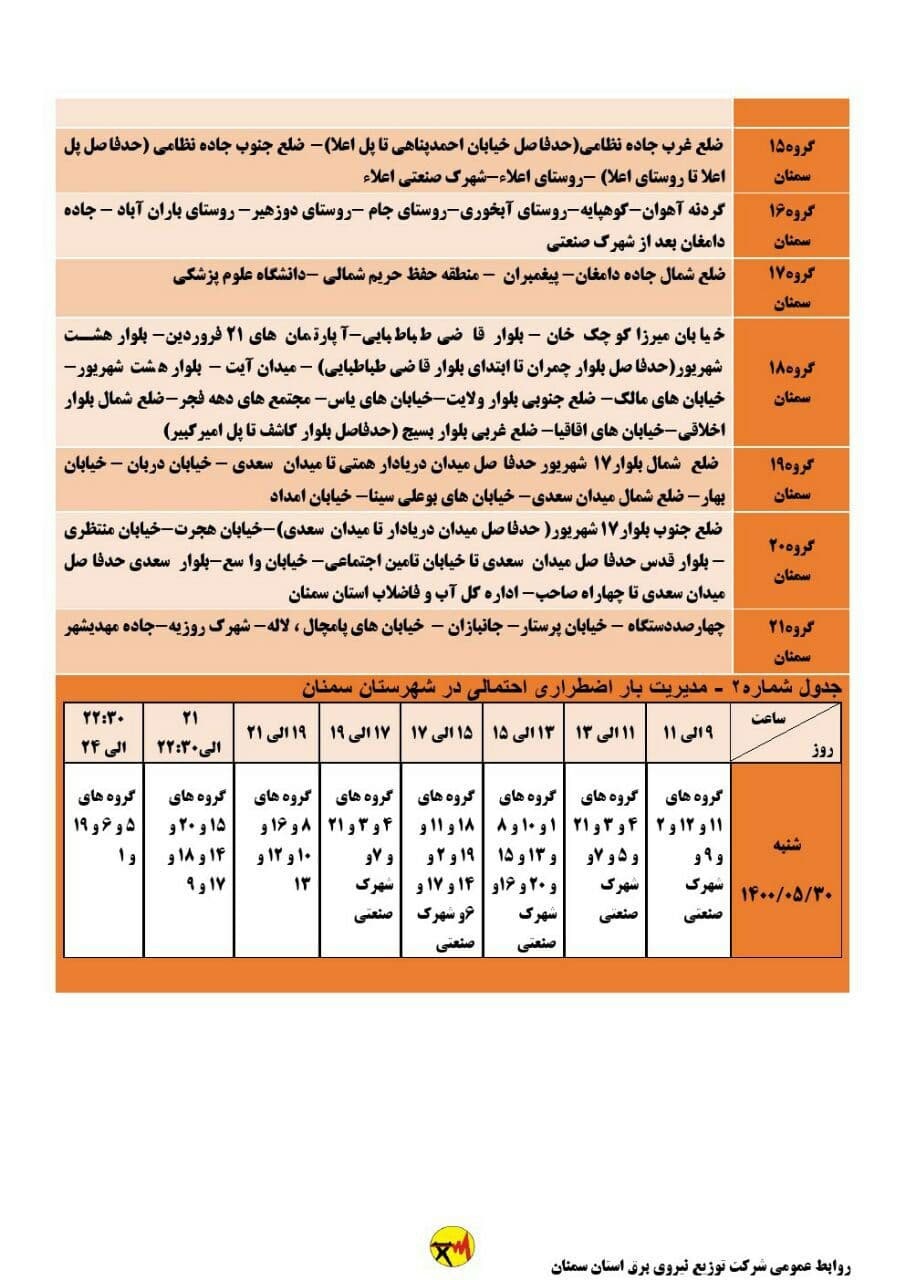 گروه۱۵
سمنان
ضلع غرب جاده نظامی(حدفاصل خیابان احمدپناهی تا پل اعلا)– ضلع جنوب جاده نظامی (حدفاصل پل
اعلا تا روستای اعلا) –روستای اعلاء–شهرک صنعتی اعلاء
گروه۱۶
سمنان
گردنه آهوان–کوهپایه–روستای آبخوری–روستای جام –روستای دوزهیر– روستای باران آباد – جاده
دامغان بعد از شهرک صنعتی
گروه۱۷
سمنان
ضلع شمال جاده دامغان– پیغمبران – منطقه حفظ حریم شمالی –دانشگاه علوم پزشکی
گروه۱۸
سمنان
خیابان میرزا کوچک خان – بلوار قاضی طباطبایی–آپارتمان های ۲۱ فروردین– بلوار هشت
شهریور(حدفاصل بلوار چمران تا ابتدای بلوار قاضی طباطبایی) – میدان آیت – بلوار هشت شهریور–
خیابان های مالک– ضلع جنوبی بلوار ولایت–خیابان های یاس– مجتمع های دهه فجر–ضلع شمال بلوار
اخلاقی–خیابان های اقاقیا– ضلع غربی بلوار بسیج (حدفاصل بلوار کاشف تا پل امیرکبیر)
گروه۱۹
سمنان
ضلع شمال بلوار۱۷ شهریور حدفاصل میدان دریادار همتی تا میدان سعدی – خیابان دربان – خیابان
بهار– ضلع شمال میدان سعدی– خیابان های بوعلی سینا– خیابان امداد
گروه۲۰
سمنان
ضلع جنوب بلوار۱۷ شهریور( حدفاصل میدان دریادار تا میدان سعدی)–خیابان هجرت–خیابان منتظری
– بلوار قدس حدفاصل میدان سعدی تا خیابان تامین اجتماعی– خیابان واسع–بلوار سعدی حدفاصل
میدان سعدی تا چهاراه صاحب– اداره کل آب و فاضلاب استان سمنان
گروه۲۱
سمنان
چهارصددستگاه – خیابان پرستار– جانبازان – خیابان های پامچال ، لاله– شهرک روزیه–جاده مهدیشهر
جدول شماره۲ - مدیریت بار اضطراری احتمالی در شهرستان سمنان
ساعت
روز
۹ الی ۱۱
۱۱ الی ۱۳
۱۳ الی ۱۵
۱۵ الی ۱۷
۱۷ الی ۱۹
۱۹ الی ۲۱
۲۱
الی۲۲:۳۰
۲۲:۳۰
الی ۲۴
شنبه
۱۴۰۰/۰۵/۳۰
گروه های
۱۱ و ۱۲ و ۲
و ۹ و
شهرک
صنعتی
گروه های
۴ و ۳ و ۲۱
و ۵ و ۷و
شهرک
صنعتی
گروه های
۱ و ۱۰ و ۸
و ۱۳ و ۱۵
و ۲۰ و ۱۶و
شهرک
صنعتی
گروه های
۱۸ و ۱۱ و
۱۹ و ۲ و
۱۴ و ۱۷ و
۶و شهرک
صنعتی
گروه های
۴ و ۳ و ۲۱
و ۷و
شهرک
صنعتی
گروه های
۸ و ۱۶ و
۱۰ و ۱۲ و
۱۳
گروه های
۱۵ و ۲۰ و
۱۴ و ۱۸ و
۱۷ و ۹
گروه های
۵ و ۶ و ۱۹
و ۱
روابط عمومی شرکت توزیع نیروی برق استان سمنان